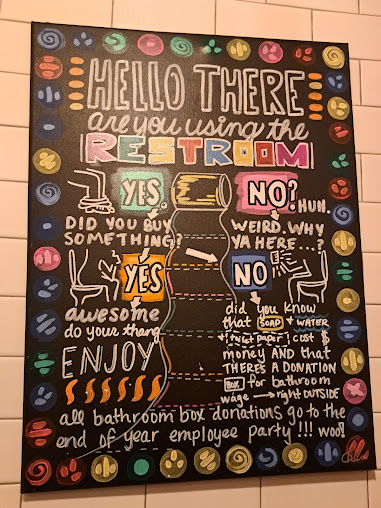 HELLO THERE
are you using the
RESTROOM
YES
NO?
HUH.
DID YOU BUY
SOMETHING?
WEIRD. WHY
YA HERE...?
YES
NO
awesome
do your thang
ENJOY
did you know
that SOAP + WATER
+ toilet paper cost $
money AND that
THERE'S A DONATION
BOX for bathroom
wage → right OUTSIDE
all bathroom box donations go to the
end of year employee party!!! woo!!